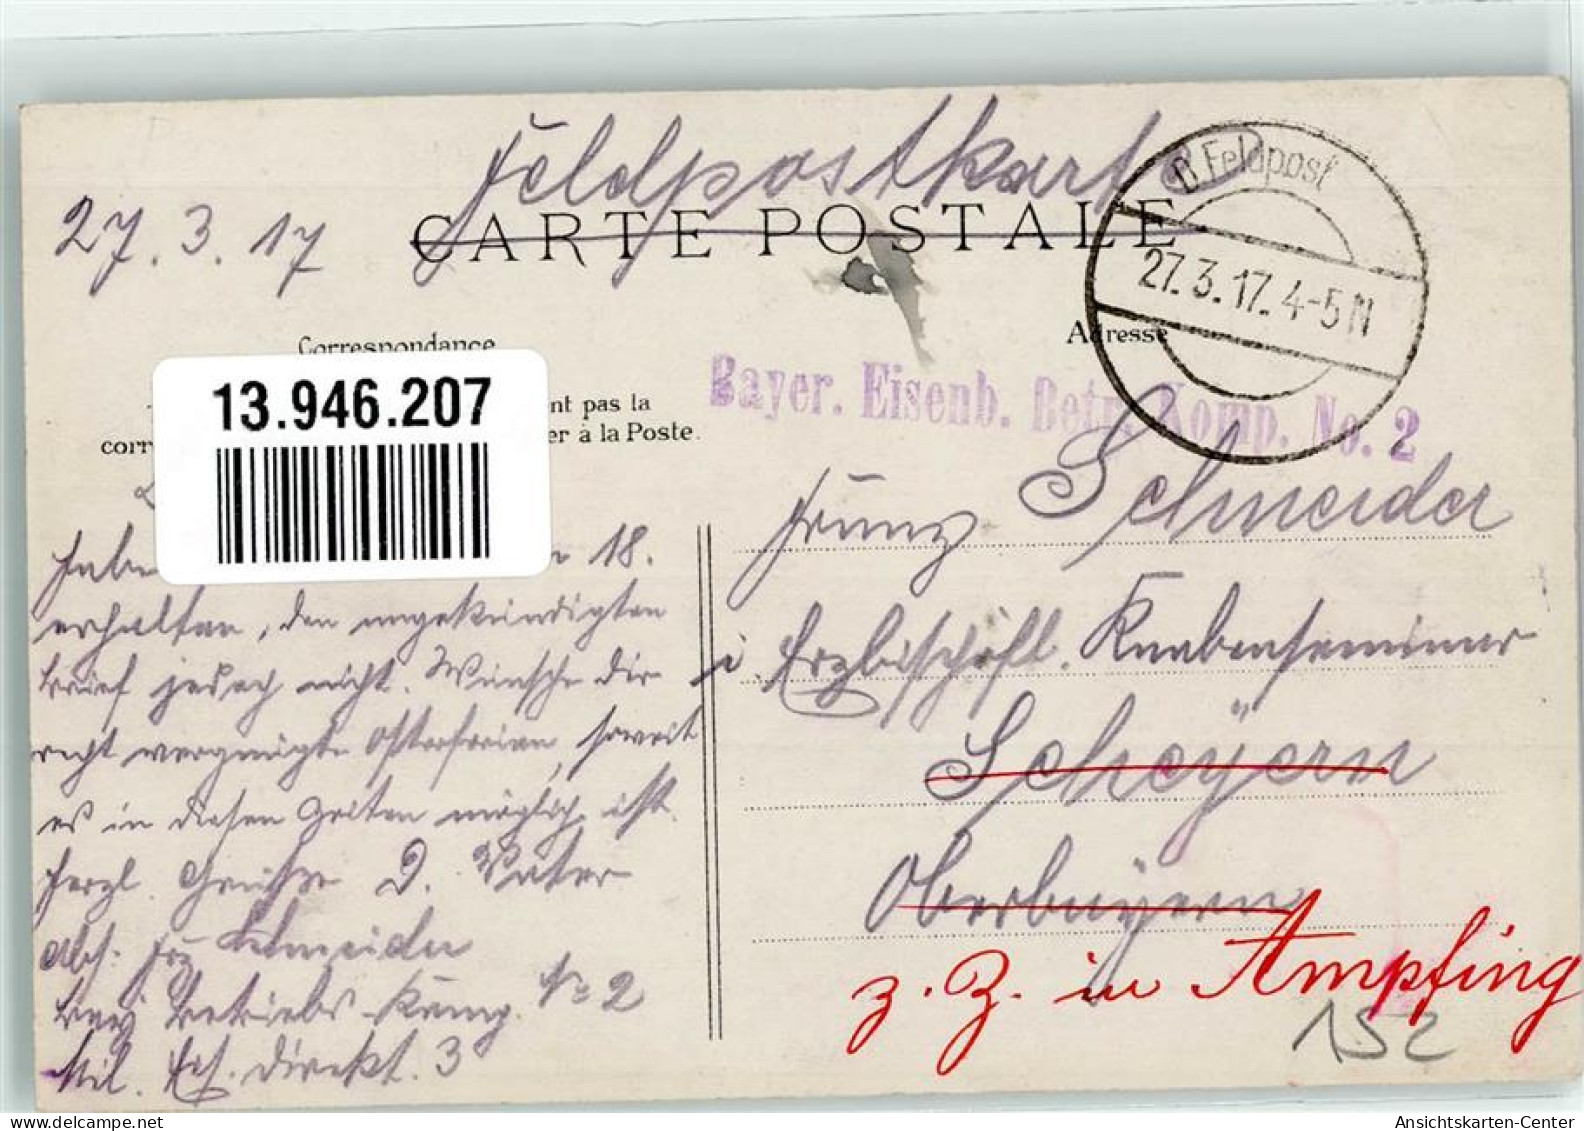 Feldpostkarte
27.3.17
CARTE POSTALE
B. Feldpost
27.3.17. 4-5 N
Correspondance
Adresse
Bayer. Eisenb. Betr. Komp. No. 2
13.946.207
nt pas la
corr er à la Poste.
Habe 18.
erhalten, den angekündigten
Brief jedoch nicht. Wünsche Dir
recht vergnügte Osterferien, soweit
es in diesen Zeiten möglich ist.
Herzl. Grüsse D. Vater
Abs: Frz Schneider
Bay Betriebs-Komp. No 2
Mil. Eis. Direkt. 3
Franz Schneider
i. Erzbischöfl. Knabenseminar
Scheyern
Oberbayern
z. Z. in Ampfing
152
Ansichtskarten-Center